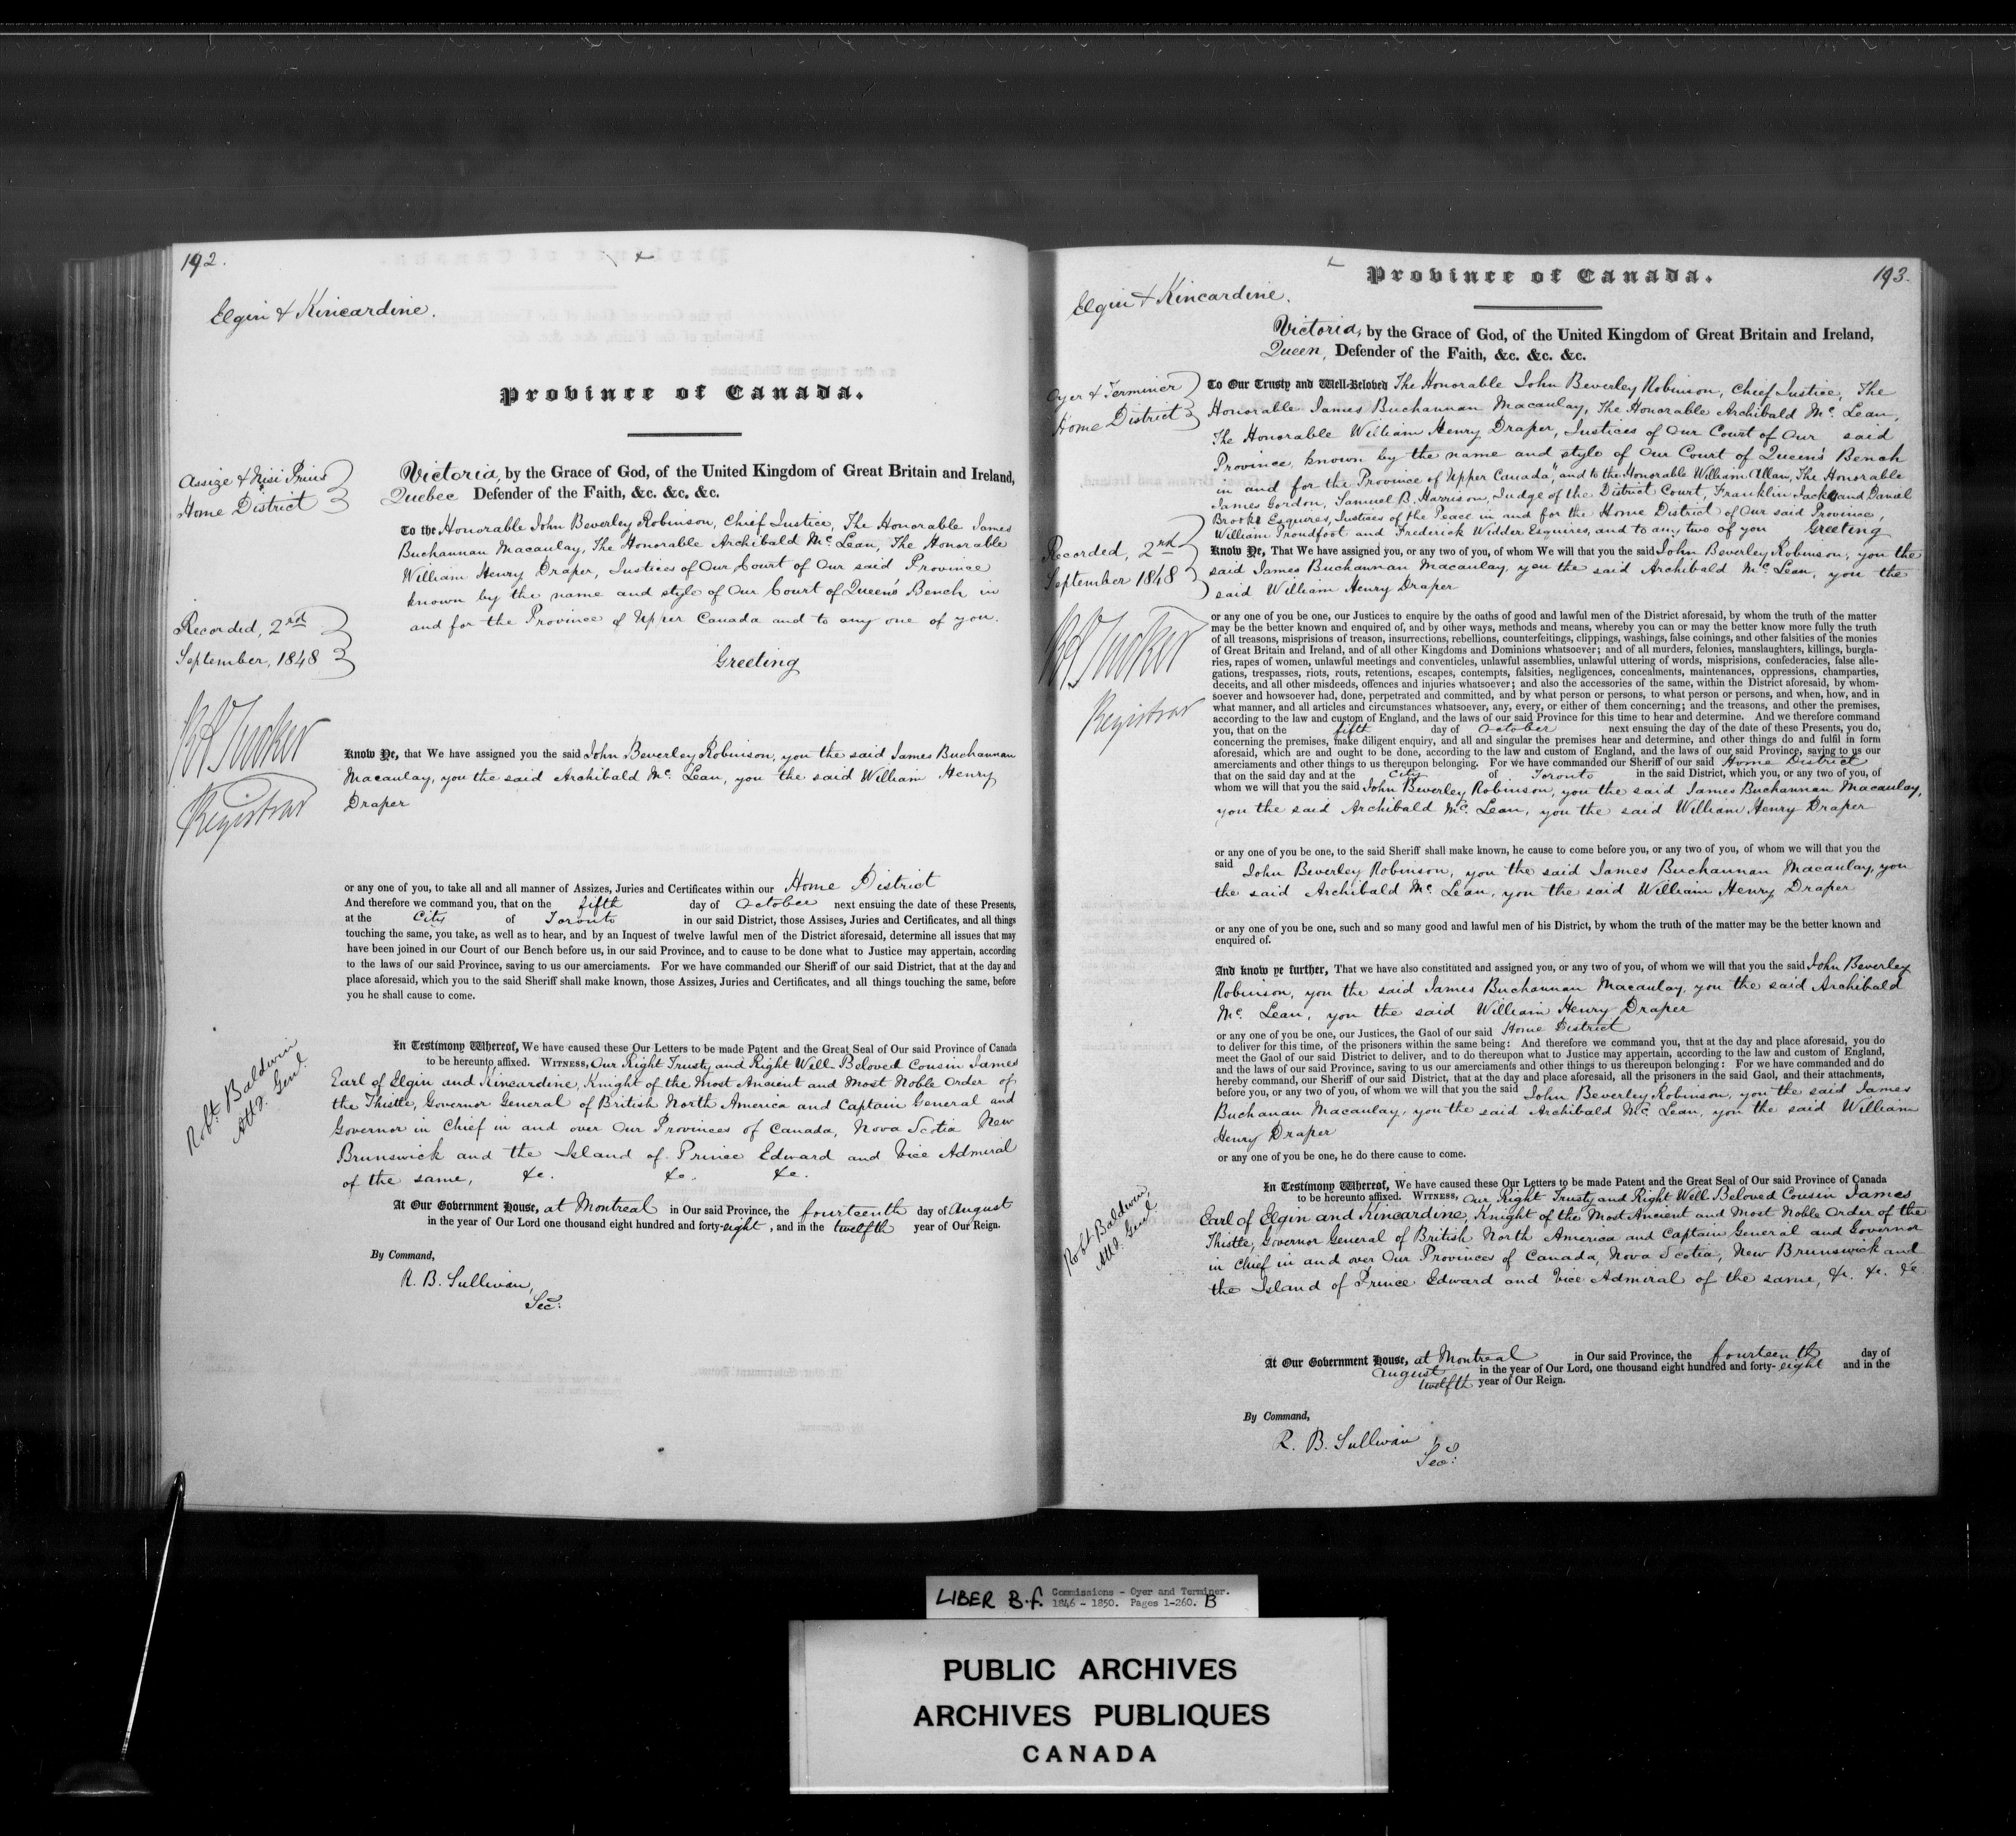 192.
Elgin & Kincardine.
Province of Canada.
Assize & Nisi Prius
Home District
Victoria, by the Grace of God, of the United Kingdom of Great Britain and Ireland,
Quebec Defender of the Faith, &c. &c, &c.
To the Honorable John Beverley Robinson, Chief Justice, The Honorable James
Buchannan Macaulay, The Honorable Archibald Mc. Lean, The Honorable
William Henry Draper, Justices of Our Court of Our said Province
known by the name and style of Our Court of Queen's Bench in
and for the Province of Upper Canada and to any one of you.
Greeting
Recorded, 2nd
September, 1848
RA Tucker
Registrar
Know Ye, that We have assigned you the said John Beverley Robinson, you the said James Buchannan
Macaulay, you the said Archibald Mc. Lean, you the said William Henry
Draper
or any one of you, to take all and all manner of Assizes, Juries and Certificates within our Home District
And therefore we command you, that on the fifth day of October next ensuing the date of these Presents,
at the City of Toronto in our said District, those Assises, Juries and Certificates, and all things
touching the same, you take, as well as to hear, and by an Inquest of twelve lawful men of the District aforesaid, determine all issues that may
have been joined in our Court of our Bench before us, in our said Province, and to cause to be done what to Justice may appertain, according
to the laws of our said Province, saving to us our amerciaments. For we have commanded our Sheriff of our said District, that at the day and
place aforesaid, which you to the said Sheriff shall make known, those Assizes, Juries and Certificates, and all things touching the same, before
you he shall cause to come.
Robt. Baldwin
Atty. Genl.
In Testimony Whereof, We have caused these Our Letters to be made Patent and the Great Seal of Our said Province of Canada
to be hereunto affixed. Witness, Our Right Trusty and Right Well-Beloved Cousin James
Earl of Elgin and Kincardine, Knight of the Most Ancient and Most Noble Order of
the Thistle, Governor General of British North America and Captain General and
Governor in Chief in and over Our Provinces of Canada, Nova Scotia New
Brunswick and the Island of Prince Edward and Vice Admiral
of the same, &c. &c. &c.
At Our Government House, at Montreal in Our said Province, the fourteenth day of August
in the year of Our Lord one thousand eight hundred and forty-eight, and in the twelfth year of Our Reign.
By Command,
R. B. Sullivan,
Secy.
193.
Province of Canada.
Elgin & Kincardine.
Victoria, by the Grace of God, of the United Kingdom of Great Britain and Ireland,
Queen, Defender of the Faith, &c. &c. &c.
Oyer & Terminer
Home District
To Our Trusty and Well-Beloved The Honorable John Beverley Robinson, Chief Justice, The
Honorable James Buchannan Macaulay, The Honorable Archibald Mc. Lean,
The Honorable William Henry Draper, Justices of Our Court of Our said
Province, known by the name and style of Our Court of Queen's Bench
in and for the Province of Upper Canada," and to the Honorable William Allan, The Honorable
James Gordon, Samuel B. Harrison, Judge of the District Court, Franklin Jackes and Daniel
Brooke Esquires, Justices of the Peace in and for the Home District of Our said Province,
William Proudfoot and Frederick Widder Esquires, and to any two of you Greeting
Recorded, 2nd
September 1848
RA Tucker
Registrar
Know Ye, That We have assigned you, or any two of you, of whom We will that you the said John Beverley Robinson, you the
said James Buchannan Macaulay, you the said Archibald Mc. Lean, you the
said William Henry Draper
or any one of you be one, our Justices to enquire by the oaths of good and lawful men of the District aforesaid, by whom the truth of the matter
may be the better known and enquired of, and by other ways, methods and means, whereby you can or may the better know more fully the truth
of all treasons, misprisions of treason, insurrections, rebellions, counterfeitings, clippings, washings, false coinings, and other falsities of the monies
of Great Britain and Ireland, and of all other Kingdoms and Dominions whatsoever; and of all murders, felonies, manslaughters, killings, burgla-
ries, rapes of women, unlawful meetings and conventicles, unlawful assemblies, unlawful uttering of words, misprisions, confederacies, false alle-
gations, trespasses, riots, routs, retentions, escapes, contempts, falsities, negligences, concealments, maintenances, oppressions, champarties,
deceits, and all other misdeeds, offences and injuries whatsoever; and also the accessories of the same, within the District aforesaid, by whom-
soever and howsoever had, done, perpetrated and committed, and by what person or persons, to what person or persons, and when, how, and in
what manner, and all articles and circumstances whatsoever, any, every, or either of them concerning; and the treasons, and other the premises,
according to the law and custom of England, and the laws of our said Province for this time to hear and determine. And we therefore command
you, that on the fifth day of October next ensuing the day of the date of these Presents, you do,
concerning the premises, make diligent enquiry, and all and singular the premises hear and determine, and other things do and fulfil in form
aforesaid, which are and ought to be done, according to the law and custom of England, and the laws of our said Province, saving to us our
amerciaments and other things to us thereupon belonging. For we have commanded our Sheriff of our said Home District
that on the said day and at the City of Toronto in the said District, which you, or any two of you, of
whom we will that you the said John Beverley Robinson, you the said James Buchannan Macaulay,
you the said Archibald Mc. Lean, you the said William Henry Draper
or any one of you be one, to the said Sheriff shall make known, he cause to come before you, or any two of you, of whom we will that you the
said John Beverley Robinson, you the said James Buchannan Macaulay, you
the said Archibald Mc Lean, you the said William Henry Draper
or any one of you be one, such and so many good and lawful men of his District, by whom the truth of the matter may be the better known and
enquired of.
And know ye further, That we have also constituted and assigned you, or any two of you, of whom we will that you the said John Beverley
Robinson, you the said James Buchannan Macaulay, you the said Archibald
Mc. Lean, you the said William Henry Draper
or any one of you be one, our Justices, the Gaol of our said Home District
to deliver for this time, of the prisoners within the same being: And therefore we command you, that at the day and place aforesaid, you do
meet the Gaol of our said District to deliver, and to do thereupon what to Justice may appertain, according to the law and custom of England,
and the laws of our said Province, saving to us our amerciaments and other things to us thereupon belonging: For we have commanded and do
hereby command, our Sheriff of our said District, that at the day and place aforesaid, all the prisoners in the said Gaol, and their attachments,
before you, or any two of you, of whom we will that you the said John Beverley Robinson, you the said James
Buchanan Macaulay, you the said Archibald Mc. Lean, you the said William
Henry Draper
or any one of you be one, he do there cause to come.
Robt. Baldwin,
Atty. Genl.
In Testimony Whereof, We have caused these Our Letters to be made Patent and the Great Seal of Our said Province of Canada
to be hereunto affixed. Witness, Our Right Trusty and Right Well Beloved Cousin James
Earl of Elgin and Kincardine, Knight of the Most Ancient and Most Noble Order of the
Thistle, Governor General of British North America and Captain General and Governor
in Chief in and over Our Provinces of Canada, Nova Scotia, New Brunswick and
the Island of Prince Edward and Vice Admiral of the same, &c. &c. &c
At Our Government House, at Montreal in Our said Province, the fourteenth day of
August in the year of Our Lord, one thousand eight hundred and forty-eight and in the
twelfth year of Our Reign.
By Command,
R. B. Sullivan,
Secy.
LIBER B.f. Commissions - Oyer and Terminer.
1846 - 1850. Pages 1-260. B
PUBLIC ARCHIVES
ARCHIVES PUBLIQUES
CANADA